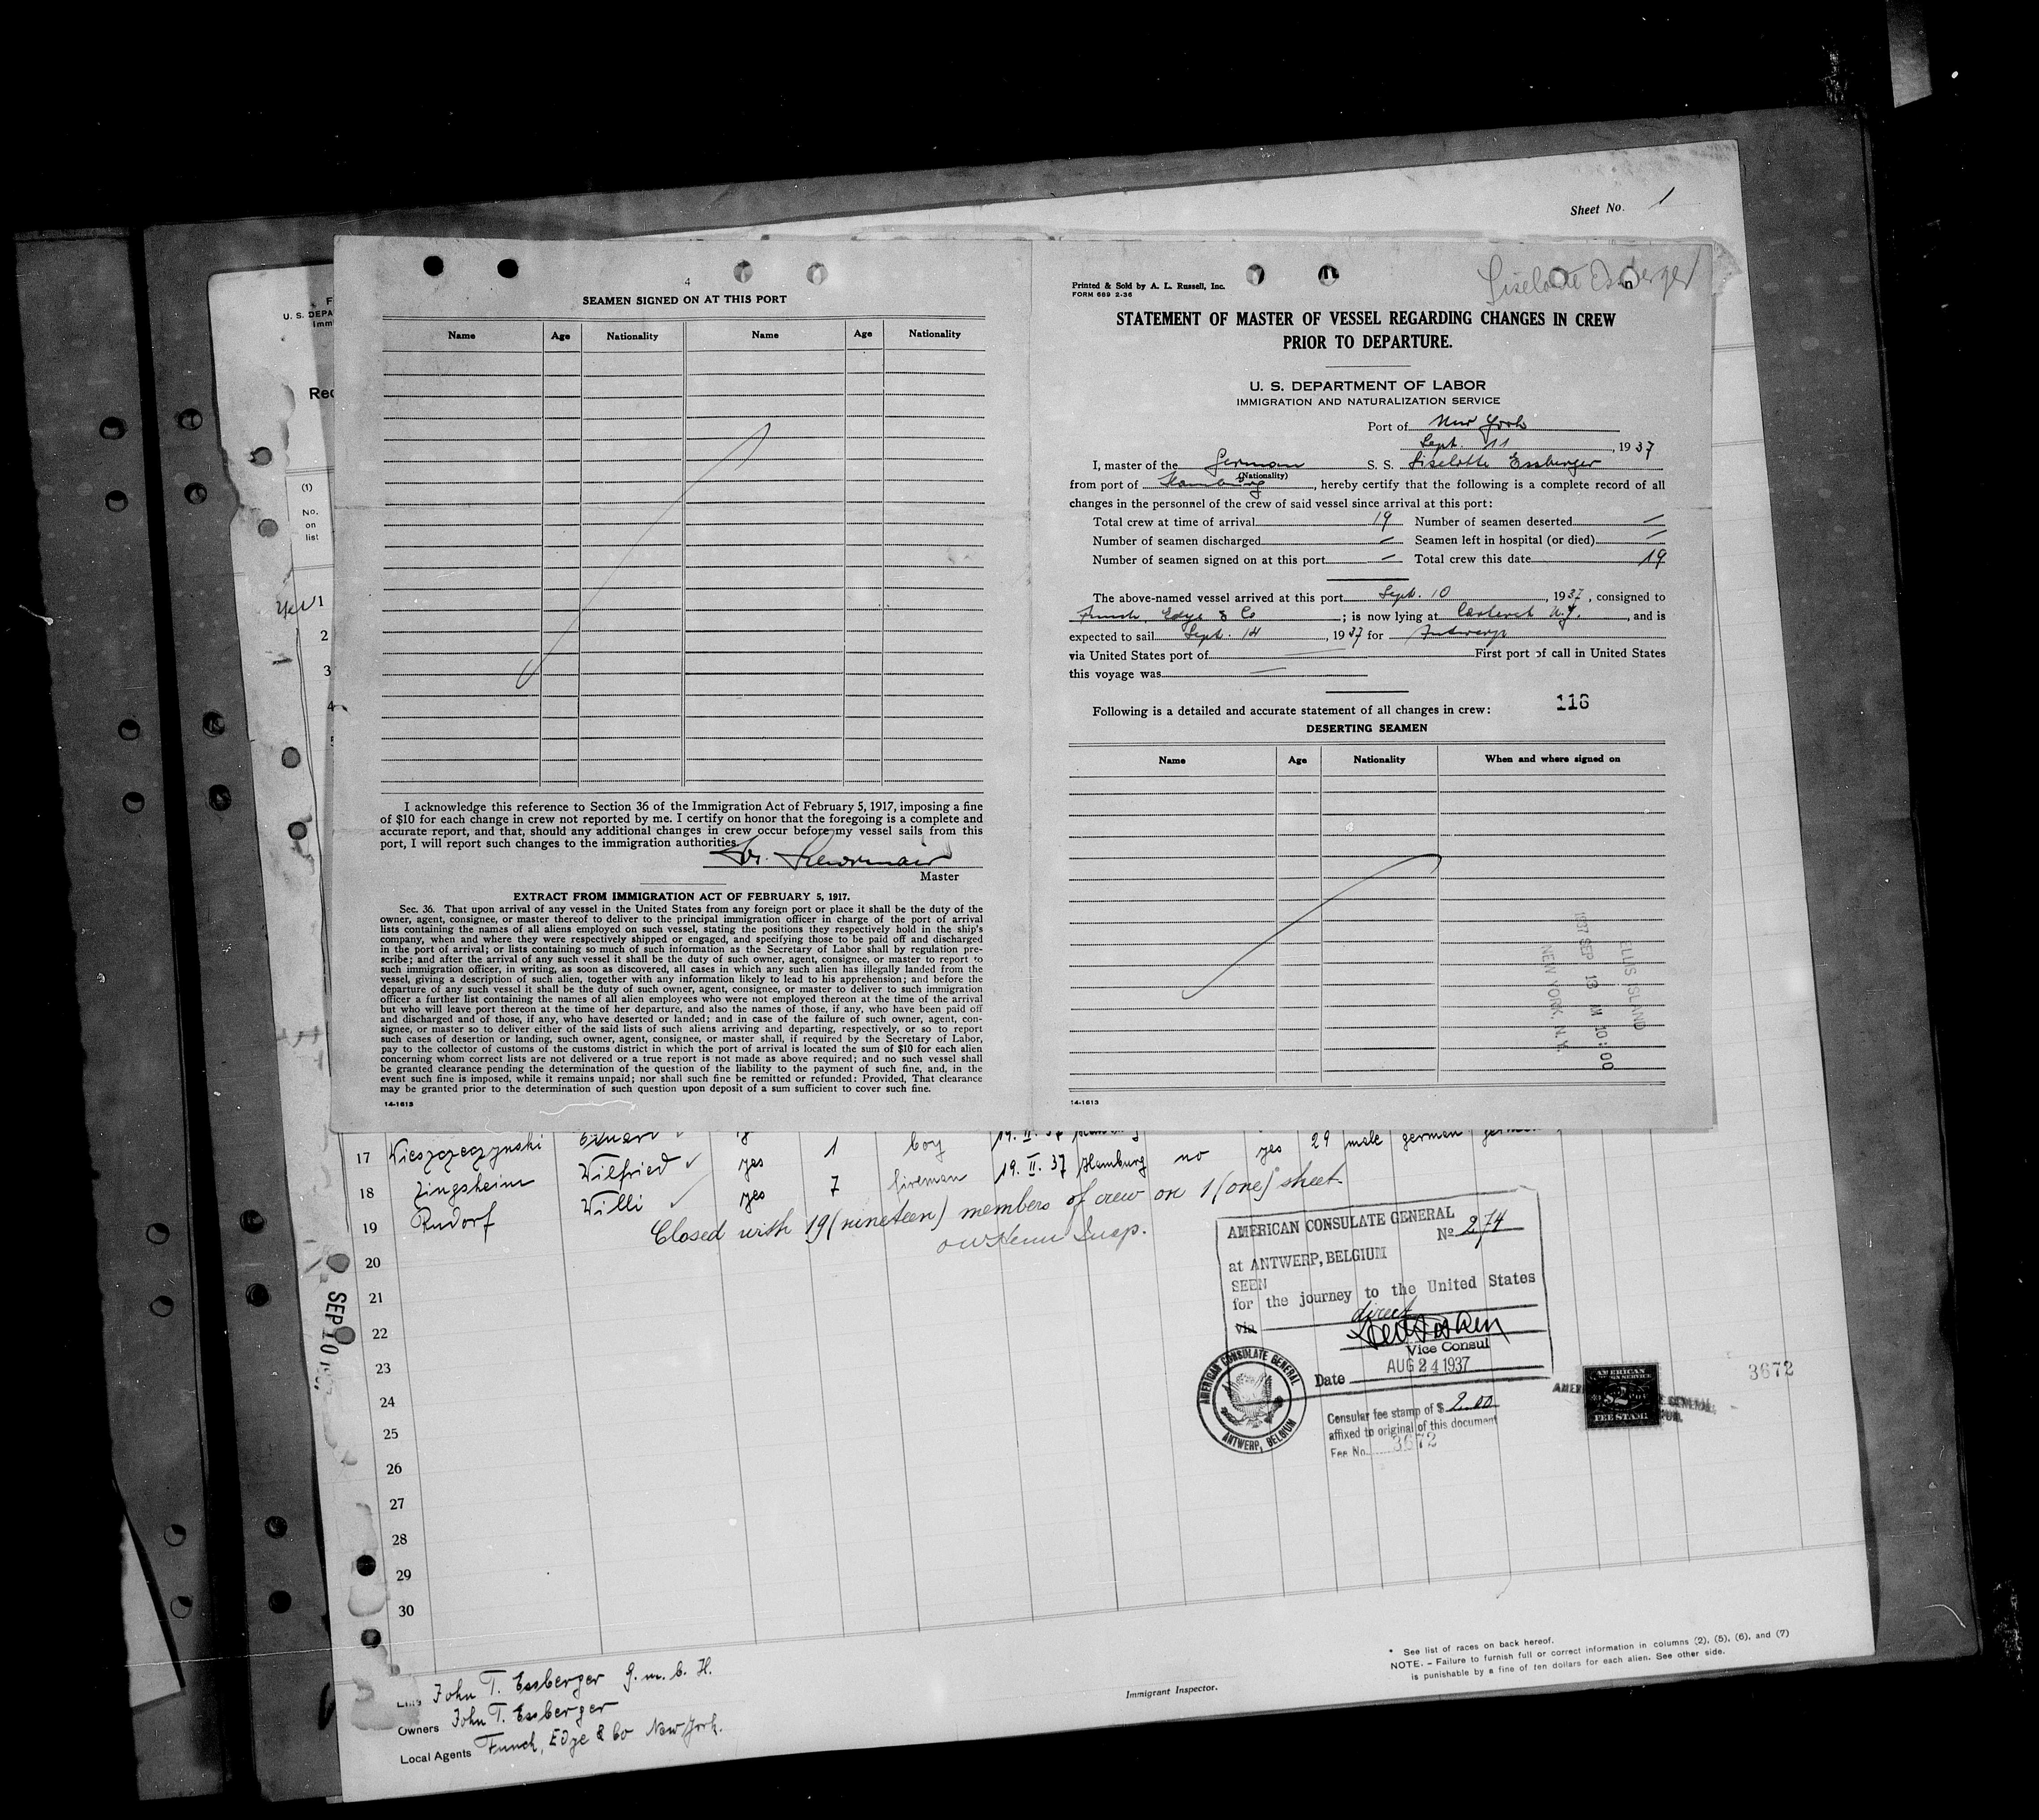 Sheet No. 1
4
SEAMEN SIGNED ON AT THIS PORT
Name Age Nationality Name Age Nationality
I acknowledge this reference to Section 36 of the Immigration Act of February 5, 1917, imposing a fine
of $10 for each change in crew not reported by me. I certify on honor that the foregoing is a complete and
accurate report, and that, should any additional changes in crew occur before my vessel sails from this
port, I will report such changes to the immigration authorities.
Master
EXTRACT FROM IMMIGRATION ACT OF FEBRUARY 5, 1917.
Sec. 36. That upon arrival of any vessel in the United States from any foreign port or place it shall be the duty of the
owner, agent, consignee, or master thereof to deliver to the principal immigration officer in charge of the port of arrival
lists containing the names of all aliens employed on such vessel, stating the positions they respectively hold in the ship's
company, when and where they were respectively shipped or engaged, and specifying those to be paid off and discharged
in the port of arrival; or lists containing so much of such information as the Secretary of Labor shall by regulation pre-
scribe; and after the arrival of any such vessel it shall be the duty of such owner, agent, consignee, or master to report to
such immigration officer, in writing, as soon as discovered, all cases in which any such alien has illegally landed from the
vessel, giving a description of such alien, together with any information likely to lead to his apprehension; and before the
departure of any such vessel it shall be the duty of such owner, agent, consignee, or master to deliver to such immigration
officer a further list containing the names of all alien employees who were not employed thereon at the time of the arrival
but who will leave port thereon at the time of her departure, and also the names of those, if any, who have been paid off
and discharged and of those, if any, who have deserted or landed; and in case of the failure of such owner, agent, con-
signee, or master so to deliver either of the said lists of such aliens arriving and departing, respectively, or so to report
such cases of desertion or landing, such owner, agent, consignee, or master shall, if required by the Secretary of Labor,
pay to the collector of customs of the customs district in which the port of arrival is located the sum of $10 for each alien
concerning whom correct lists are not delivered or a true report is not made as above required; and no such vessel shall
be granted clearance pending the determination of the question of the liability to the payment of such fine, and, in the
event such fine is imposed, while it remains unpaid; nor shall such fine be remitted or refunded: Provided, That clearance
may be granted prior to the determination of such question upon deposit of a sum sufficient to cover such fine.
14-1613
Liselotte Essberger
Printed & Sold by A. L. Russell, Inc.
FORM 689 2-36
STATEMENT OF MASTER OF VESSEL REGARDING CHANGES IN CREW
PRIOR TO DEPARTURE.
U. S. DEPARTMENT OF LABOR
IMMIGRATION AND NATURALIZATION SERVICE
Port of New York
Sept. 11, 1937
I, master of the German S. S. Liselotte Essberger
(Nationality)
from port of Hamburg, hereby certify that the following is a complete record of all
changes in the personnel of the crew of said vessel since arrival at this port:
Total crew at time of arrival 19 Number of seamen deserted —
Number of seamen discharged — Seamen left in hospital (or died) —
Number of seamen signed on at this port — Total crew this date 19
The above-named vessel arrived at this port Sept. 10, 1937, consigned to
Funch, Edye & Co; is now lying at Carteret N.J., and is
expected to sail Sept. 14, 1937 for Antwerp
via United States port of — First port of call in United States
this voyage was —
116
Following is a detailed and accurate statement of all changes in crew:
DESERTING SEAMEN
Name Age Nationality When and where signed on
ELLIS ISLAND
1937 SEP 13 AM 10:00
NEW YORK, N.Y.
14-1613
U. S. DEPA
Imm
Rec
(1)
No.
on
list
1
2
3
4
17 Wieszczeczynski boy
18 Zingsheim Wilfried yes 1 19. II. 37 Hamburg no yes 29 male german
19 Rudorf Willi yes 7 fireman
Closed with 19 (nineteen) members of crew on 1 (one) sheet.
Insp.
20
21
22
23
24
25
26
27
28
29
30
SEP 10
AMERICAN CONSULATE GENERAL
No 274
at ANTWERP, BELGIUM
SEEN
for the journey to the United States
via direct
Vice Consul
Date AUG 24 1937
AMERICAN CONSULATE GENERAL
ANTWERP, BELGIUM
Consular fee stamp of $ 2.00
affixed to original of this document
Fee No. 3672
AMERICAN
$2
FEE STAMP
3672
* See list of races on back hereof.
NOTE. – Failure to furnish full or correct information in columns (2), (5), (6), and (7)
is punishable by a fine of ten dollars for each alien. See other side.
Immigrant Inspector.
Line John T. Essberger G.m.b.H.
Owners John T. Essberger
Local Agents Funch, Edye & Co New York.